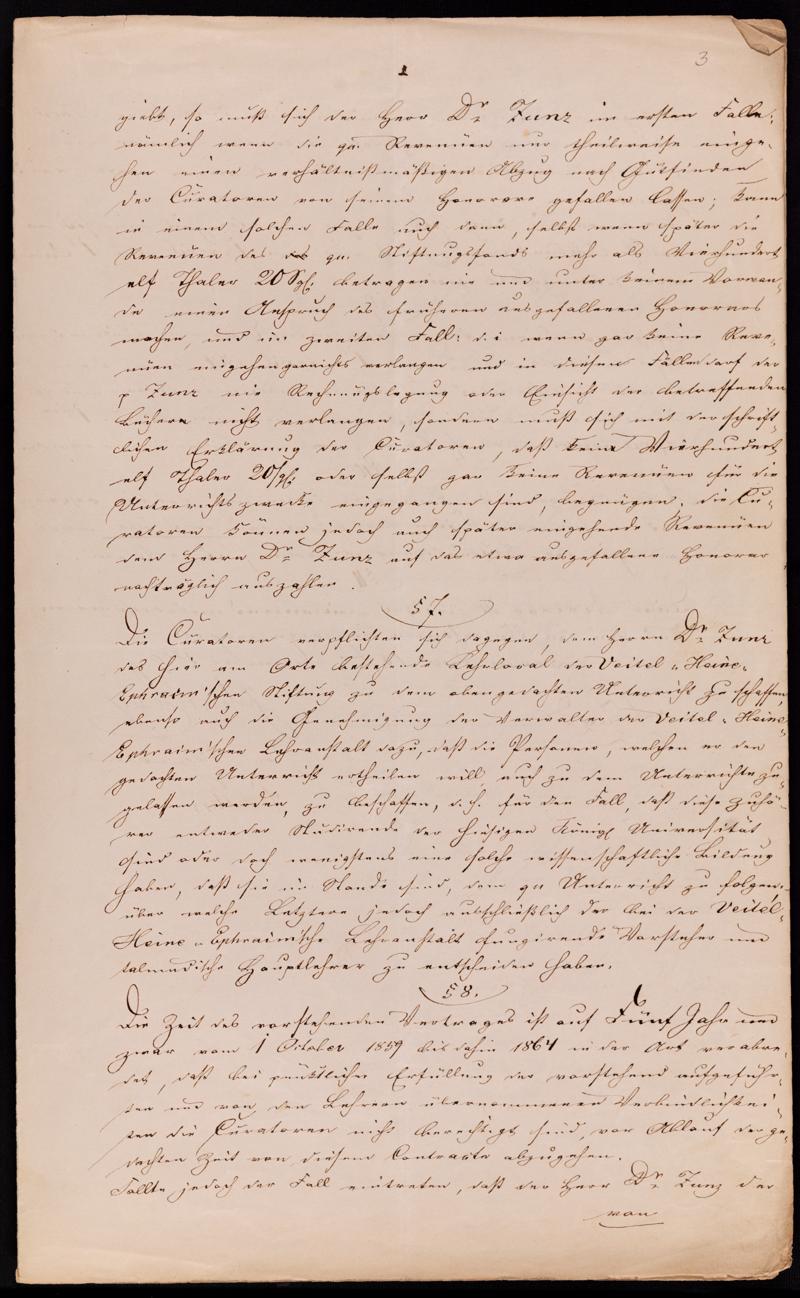 3
1
giebt, so muß sich der Herr Dr Zunz im ersten Falle,
nämlich wenn die qu. Revenüen nur theilweise einge-
hen einen verhältnißmäßigen Abzug nach Gutfinden
der Curatoren von seinem Honorare gefallen lassen; kann
in einem solchen Falle auch dann, selbst wenn später die
Revenüen des qu. Stiftungsfonds mehr als Vierhundert
elf Thaler 20 Sgl. betragen nie und unter keinem Vorwan-
de einen Anspruch des früheren ausgefallenen Honorars
machen, und im zweiten Fall: d.i wenn gar keine Reve-
nüen eingehen garnichts verlangen und in diesen Fällen darf der
p Zunz nie Rechnungslegung oder Einsicht der betreffenden
Bücher nicht verlangen, sondern muß sich mit der schrift-
lichen Erklärung der Curatoren, daß keine Vierhundert
elf Thaler 20 Sgl. oder selbst gar keine Revenüen für die
Unterrichtszwecke eingegangen sind, begnügen. die Cu-
ratoren können jedoch auch später eingehende Revenüen
dem Herrn Dr Zunz auf das etwa ausgefallene Honorar
nachträglich auszahlen.
§ 7.
Die Curatoren verpflichten sich dagegen, dem Herrn Dr Zunz
das hier am Orte bestehende Lehrlocal der Veitel-Heine-
Ephraim'schen Stiftung zu dem obengedachten Unterricht zu schaffen,
ebenso auch die Genehmigung der Verwalter der Veitel-Heine-
Ephraim'schen Lehranstalt dazu, daß die Personen, welchen er den
gedachten Unterricht ertheilen will auch zu dem Unterrichte zu-
gelassen werden, zu beschaffen, d.h. für den Fall, daß diese Zuhö-
rer entweder Studirende der hiesigen Königl Universität
sind oder doch wenigstens eine solche wissenschaftliche Bildung
haben, daß sie im Stande sind, dem qu Unterricht zu folgen,
über welche Letztere jedoch ausschließlich der bei der Veitel-
Heine-Ephraim'sche Lehranstalt fungirende Vorsteher und
talmudische Hauptlehrer zu entscheiden haben.
§ 8.
Die Zeit des vorstehenden Vertrages ist auf Fünf Jahr und
zwar vom 1 October 1859 bis dahin 1864 in der Art verabre-
det, daß bei pünktlicher Erfüllung der vorstehend aufgeführ-
ten und von den Lehrern übernommenen Verbindlichkei-
ten die Curatoren nicht berechtigt sind, vor Ablauf der ge-
dachten Zeit von diesem Contracte abzugehen.
Sollte jedoch der Fall eintreten, daß der Herr Dr Zunz der
von